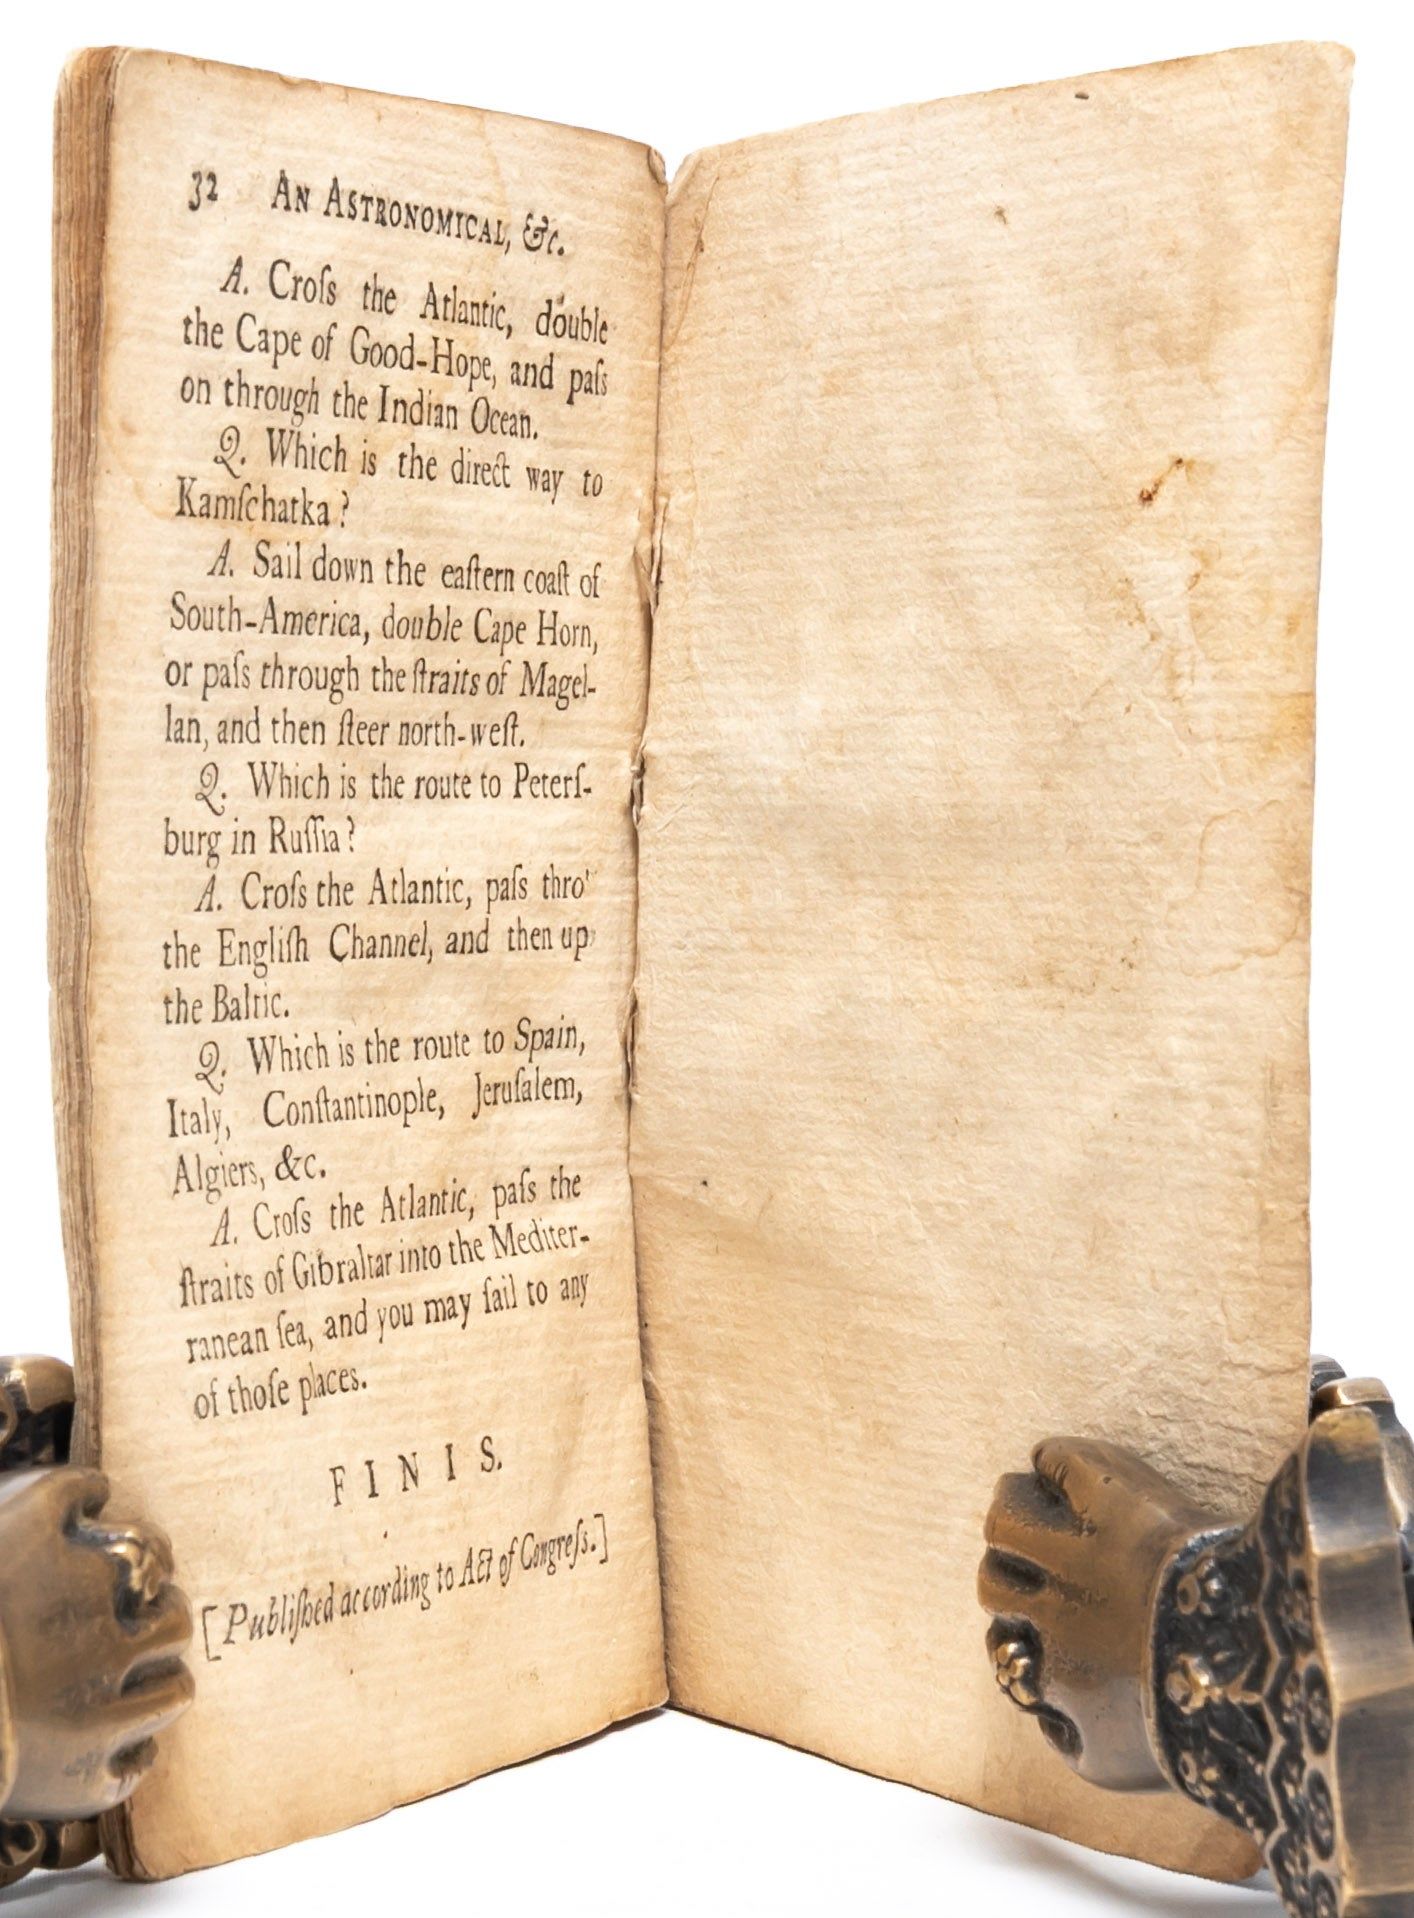 32 AN ASTRONOMICAL, &c.
A. Croſs the Atlantic, double
the Cape of Good-Hope, and paſs
on through the Indian Ocean.
Q. Which is the direct way to
Kamſchatka?
A. Sail down the eaſtern coaſt of
South-America, double Cape Horn,
or paſs through the ſtraits of Magel-
lan, and then ſteer north-weſt.
Q. Which is the route to Peterſ-
burg in Ruſſia?
A. Croſs the Atlantic, paſs thro'
the Engliſh Channel, and then up
the Baltic.
Q. Which is the route to Spain,
Italy, Conſtantinople, Jeruſalem,
Algiers, &c.
A. Croſs the Atlantic, paſs the
ſtraits of Gibraltar into the Mediter-
ranean ſea, and you may ſail to any
of thoſe places.
FINIS.
[Publiſhed according to Act of Congreſs.]